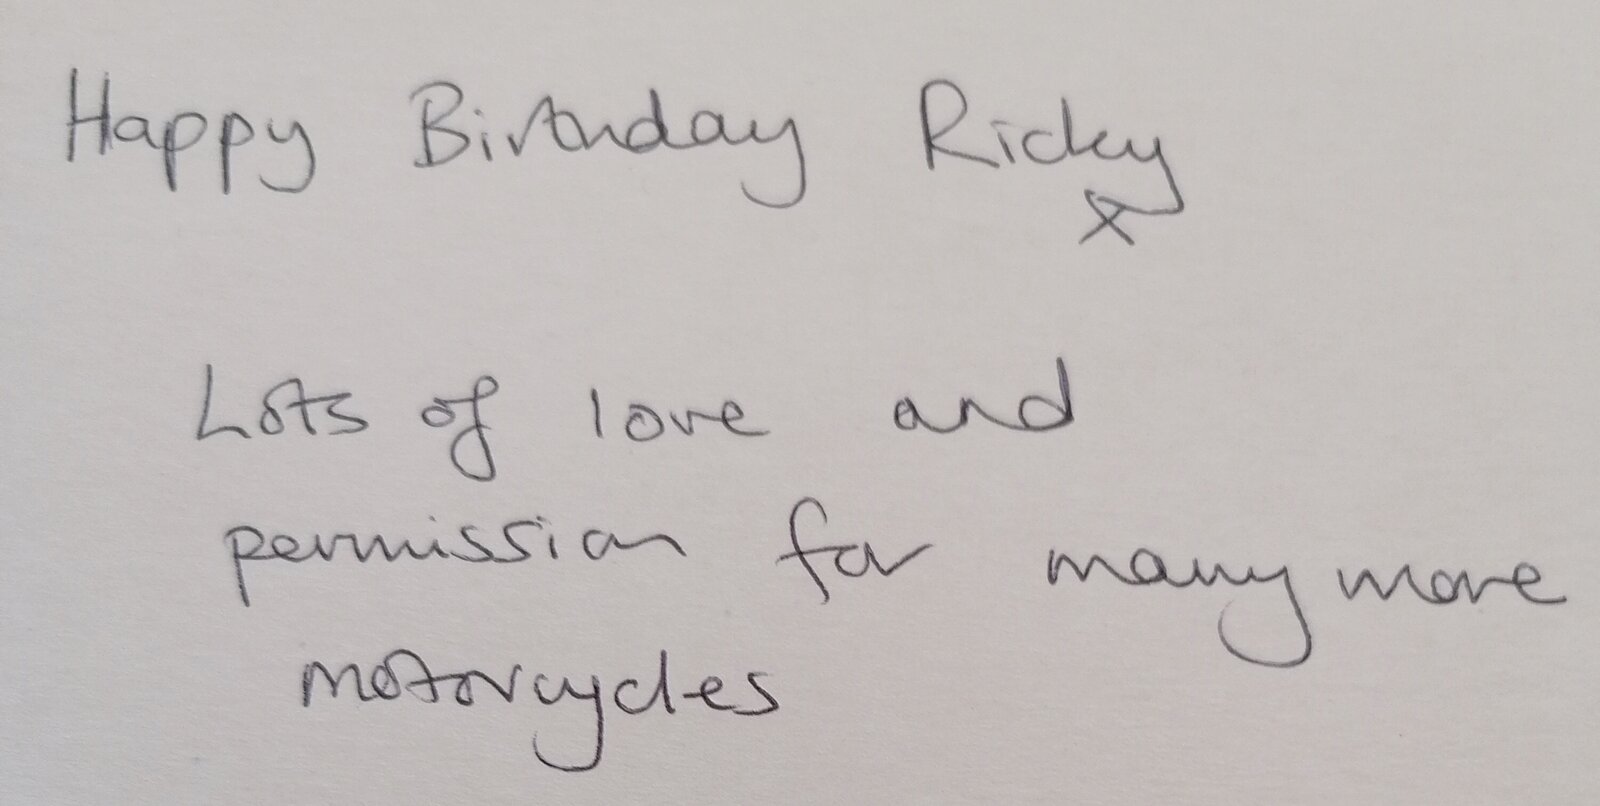 Happy Birthday Ricky
x
Lots of love and
permission for many more
motorcycles